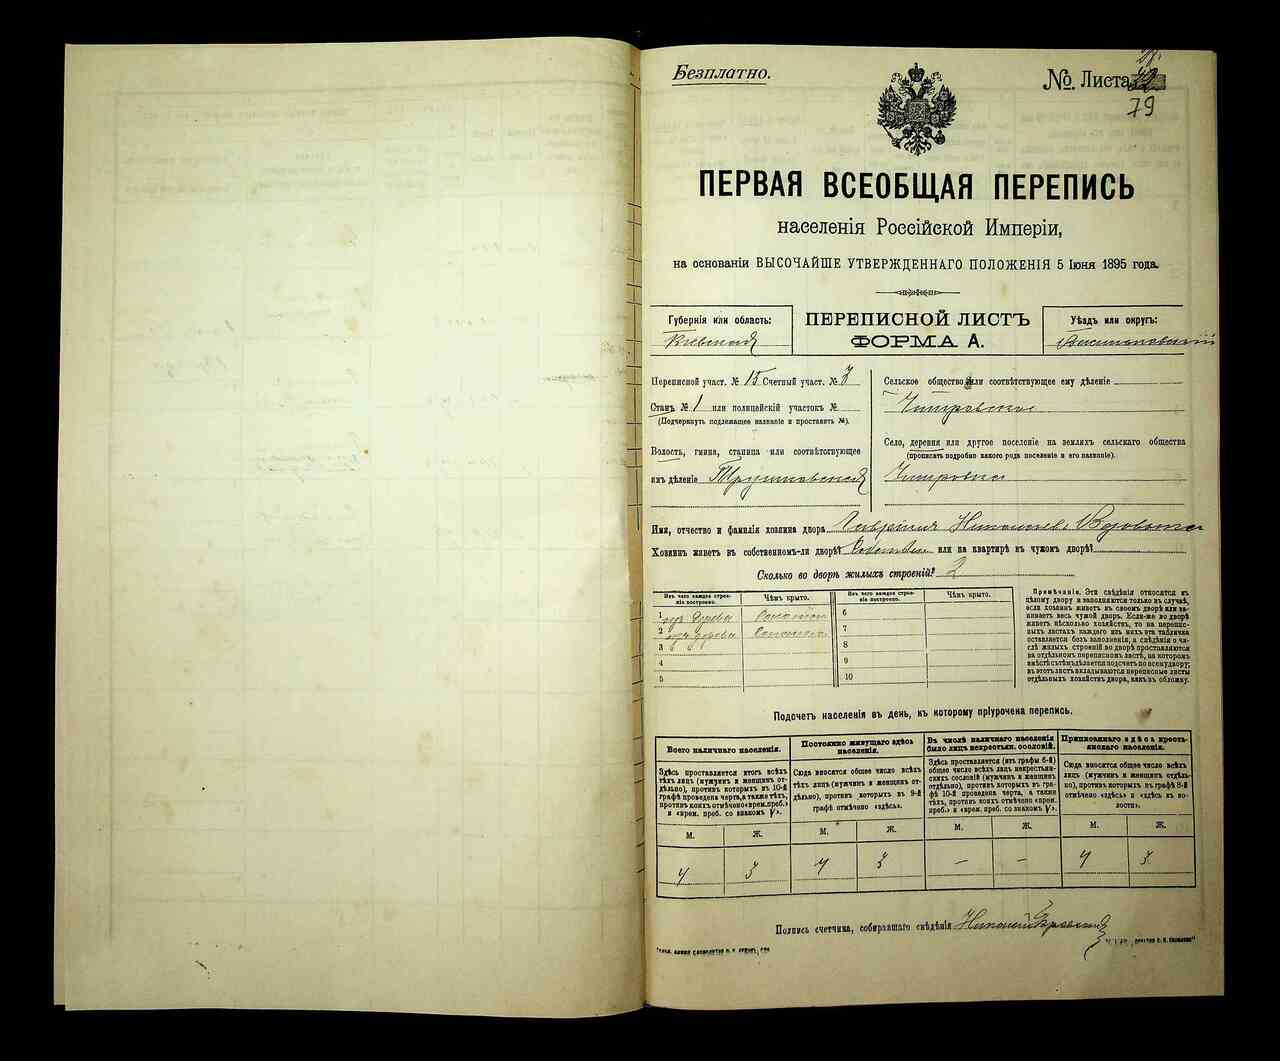 Безплатно.
№ Листа
79
ПЕРВАЯ ВСЕОБЩАЯ ПЕРЕПИСЬ
населенія Россійской Имперіи,
на основаніи ВЫСОЧАЙШЕ УТВЕРЖДЕННАГО ПОЛОЖЕНІЯ 5 Іюня 1895 года.
Губернія или область:
Кіевская
ПЕРЕПИСНОЙ ЛИСТЪ
ФОРМА А.
Уѣздъ или округъ:
Переписной участ. № 15 Счетный участ. № 3
Станъ № 1 или полицейскій участокъ №
(Подчеркнуть подлежащее названіе и проставить №).
Волость, гмина, станица или соотвѣтствующее
имъ дѣленіе
Сельское общество или соотвѣтствующее ему дѣленіе
Село, деревня или другое поселеніе на земляхъ сельскаго общества
(прописать подробно какого рода поселеніе и его названіе).
Имя, отчество и фамилія хозяина двора
Хозяинъ живетъ въ собственномъ-ли дворѣ? или на квартирѣ въ чужомъ дворѣ?
Сколько во дворѣ жилыхъ строеній? 2
Изъ чего каждое строеніе построено.
Чѣмъ крыто.
Изъ чего каждое строеніе построено.
Чѣмъ крыто.
1 изъ дерева
2 изъ дерева
3
4
5
6
7
8
9
10
Примѣчаніе. Эти свѣдѣнія относятся къ
цѣлому двору и заполняются только въ случаѣ,
если хозяинъ живетъ въ своемъ дворѣ или занимаетъ
весь чужой дворъ. Если-же во дворѣ
живетъ нѣсколько хозяйствъ, то на переписныхъ
листахъ каждаго изъ нихъ эта табличка
оставляется безъ заполненія, а свѣдѣнія о числѣ
жилыхъ строеній во дворѣ проставляются
на отдѣльномъ переписномъ листѣ, на которомъ
вмѣстѣ съ тѣмъ дѣлается подсчетъ по всему двору;
въ этотъ листъ вкладываются переписные листы
отдѣльныхъ хозяйствъ двора, какъ въ обложку.
Подсчетъ населенія въ день, къ которому пріурочена перепись.
Всего наличнаго населенія.
Постоянно живущаго здѣсь населенія.
Въ числѣ наличнаго населенія было лицъ некрестьян. сословій.
Приписаннаго здѣсь крестьянскаго населенія.
Здѣсь проставляется итогъ всѣхъ
тѣхъ лицъ (мужчинъ и женщинъ отдѣльно),
противъ которыхъ въ 10-й
графѣ проведена черта, а также тѣхъ,
противъ коихъ отмѣчено «врем. преб.»
и «врем. преб. со знакомъ V».
Сюда вносятся общее число всѣхъ
тѣхъ лицъ (мужчинъ и женщинъ отдѣльно),
противъ которыхъ въ 9-й
графѣ отмѣчено «здѣсь».
Здѣсь проставляется (изъ графы 6-й)
общее число всѣхъ лицъ некрестьянскихъ
сословій (мужчинъ и женщинъ
отдѣльно), противъ которыхъ въ графѣ
10-й проведена черта, а также
тѣхъ, противъ коихъ отмѣчено «врем.
преб.» и «врем. преб. со знакомъ V».
Сюда вносятся общее число всѣхъ
лицъ (мужчинъ и женщинъ отдѣльно),
противъ которыхъ въ графѣ 8-й
отмѣчено «здѣсь» и «здѣсь къ волости».
М. Ж. М. Ж. М. Ж. М. Ж.
4 3 4 3 — — 4 3
Подпись счетчика, собиравшаго свѣдѣнія